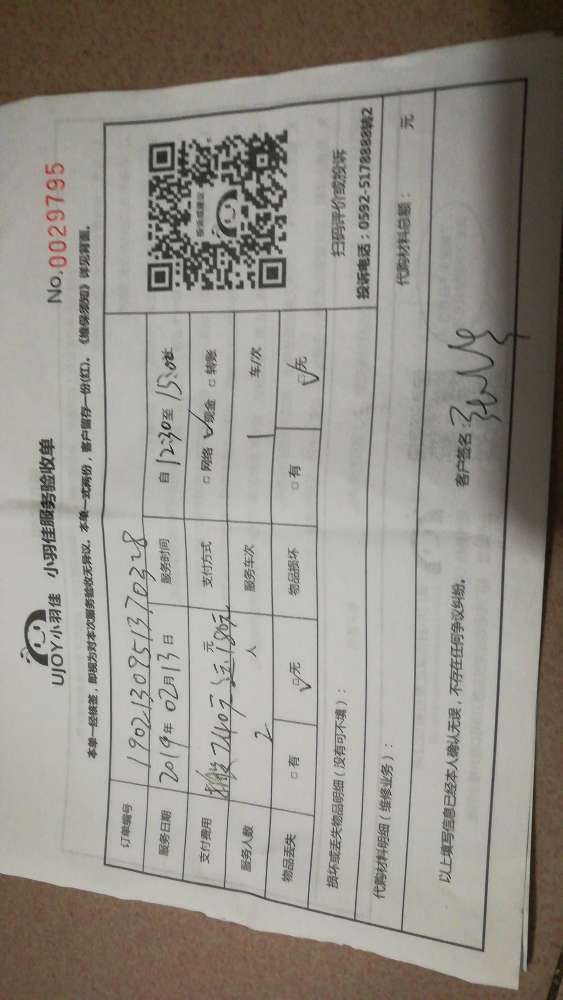 UJOY小羽佳 小羽佳服务验收单 No.0029795
本单一经核签，即视为对本次服务验收无异议。本单一式两份，客户留存一份(红)。《维保须知》详见背面。
订单编号 190213095137703​28
服务日期 2019年02月13日 服务时间 自12:30至15:00止
支付费用 240元 180元 元 支付方式 □网络 ☑现金 □转账
服务人数 2 人 服务车次 1 车/次
物品丢失 □有 ☑无 物品损坏 □有 ☑无
投诉或建议
扫码评价或投诉
投诉电话：0592-5178888转2
损坏或丢失物品明细（没有可不填）：
代购材料明细（维修业务）： 代购材料总额： 元
以上填写信息已经本人确认无误，不存在任何争议纠纷。 客户签名：